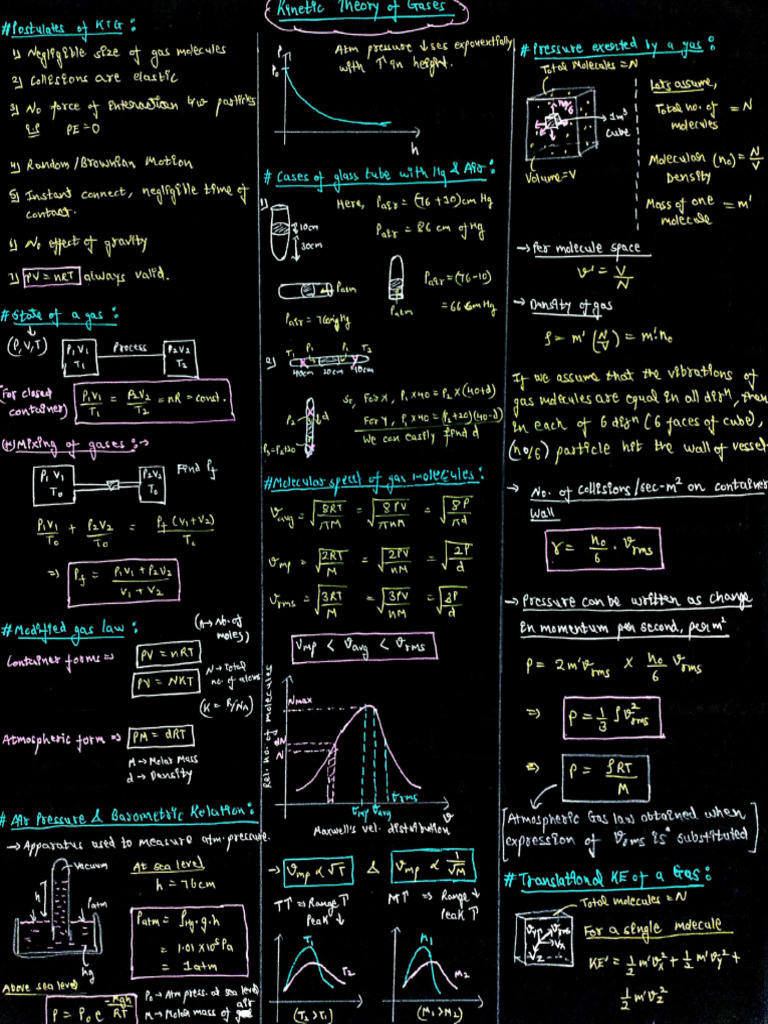 Kinetic Theory of Gases
#Postulates of KTG:
1) Negligible size of gas molecules
2) Collisions are elastic
3) No force of Interaction b/w particles
i.e PE=0
4) Random/Brownian Motion
5) Instant connect, negligible time of
contact.
6) No effect of gravity
7) PV = nRT always valid.
#State of a gas:
(P,V,T)
P₁V₁
T₁
Process
P₂V₂
T₂
(For closed
container)
P₁V₁/T₁ = P₂V₂/T₂ = nR = const.
(*) Mixing of gases:→
P₁V₁
T₀
P₂V₂
T₀
Find Pf
P₁V₁/T₀ + P₂V₂/T₀ = Pf(V₁+V₂)/T₀
⇒ Pf = P₁V₁+P₂V₂/V₁+V₂
#Modified gas law:
(n→No. of
moles)
Container forms ⇒
PV = nRT
PV = NKT
N→Total
no. of atoms
(K = R/NA)
Atmospheric form ⇒ PM = dRT
M→Molar Mass
d→Density
# Air Pressure & Barometric Relation:
→Apparatus used to measure atm. pressure.
vacuum
h
Patm
hg
At sea level
h = 76cm
Patm = ρHg.g.h
= 1.01 × 10⁵ Pa
= 1atm
Above sea level
P = P₀ e^-Mgh/RT
P₀→Atm press. at sea level
M→Molar mass of air
P
P₀
h
Atm pressure ↓ses exponentially
with ↑ in height.
# Cases of glass tube with Hg & Air:
1)
10cm
30cm
Here, Pair = (76+10)cm Hg
Pair = 86 cm of Hg
Patm
Pair = 76cmHg
Patm
Pair = (76-10)
= 66cmHg
2)
T₁ P₁ P₁ T₂
40cm 20cm 40cm
P₂
d
P₃=P₂+20
So, For X, P₁×40 = P₂×(40+d)
For Y, P₁×40 = (P₂+20)(40-d)
We can easily find d
#Molecular speed of gas molecules:
Vavg = √8RT/πM = √8PV/πnM = √8P/πd
Vmp = √2RT/M = √2PV/nM = √2P/d
Vrms = √3RT/M = √3PV/nM = √3P/d
Vmp < Vavg < Vrms
Rel. no. of molecules
Nmax
dN
N
Vmp Vavg Vrms
V
Maxwell's vel. distribution
→ Vmp ∝ √T & Vmp ∝ 1/√M
T↑ ⇒ Range ↑
Peak ↓
M↑ ⇒ Range ↓
Peak ↑
T₁
T₂
(T₂>T₁)
M₁
M₂
(M₁>M₂)
# Pressure exerted by a gas:
Total Molecules = N
n₀/6
1m³
Cube
Volume=V
Let's assume,
Total no. of
molecules = N
Molecular
Density (n₀) = N/V
Mass of one
molecule = m'
→Per molecule space
v' = V/N
→ Density of gas
ρ = m'(N/V) = m'.n₀
If we assume that the vibrations of
gas molecules are equal in all dirⁿ, then
in each of 6 dirⁿ (6 faces of cube),
(n₀/6) particle hit the wall of vessel
→ No. of collisions/sec-m² on container
wall
r = n₀/6 . Vrms
→ Pressure can be written as change
in momentum per second, per m²
P = 2m'Vrms × n₀/6 Vrms
⇒ P = 1/3 ρV²rms
⇒ P = ρRT/M
[Atmospheric Gas law obtained when
expression of Vrms is substituted]
# Translational KE of a Gas:
Total molecules = N
Vy
V
Vx
Vz
For a single molecule
KE' = 1/2 m'Vx² + 1/2 m'Vy² +
1/2 m'Vz²